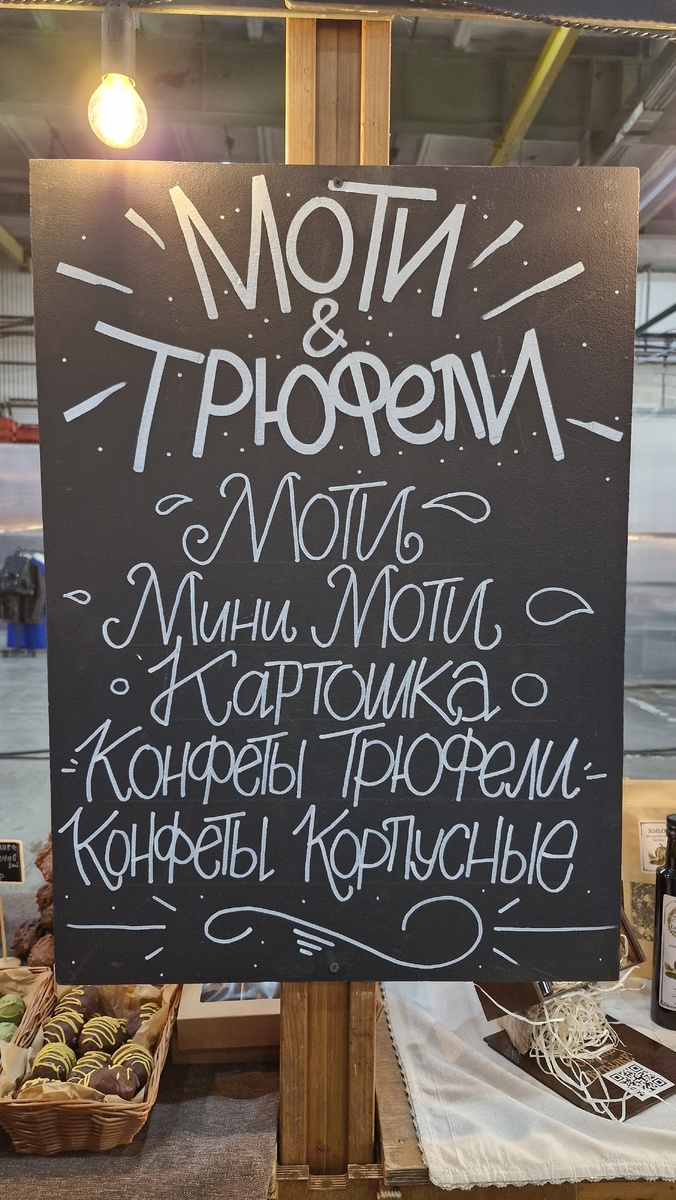 Моти
&
Трюфели
Моти
Мини Моти
Картошка
Конфеты Трюфели
Конфеты Корпусные